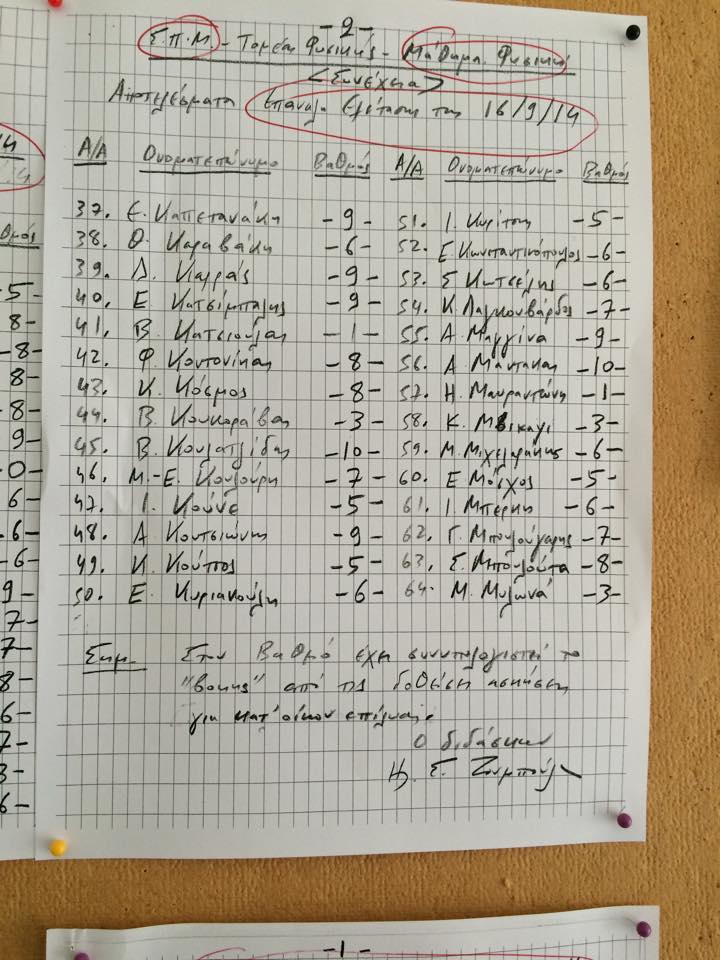 -2-
Σ.Π.Μ - Τομέας Φυσικής - Μάθημ. Φυσική
<Συνέχεια>
Αποτελέσματα Επαναλ. Εξέτασης της 16/9/14
Α/Α Ονοματεπώνυμο Βαθμός Α/Α Ονοματεπώνυμο Βαθμός
37. Ε. Καπετανάκη -9- 51. Ι. Κυρίτσης -5-
38. Θ. Καραβάκη -6- 52. Ε. Κωνσταντινόπουλος -6-
39. Δ. Καρράς -9- 53. Σ. Κωτσέλης -6-
40. Ε. Κατσίμπαλης -9- 54. Κ. Λαγκουβάρδος -7-
41. Β. Κατσιούλας -1- 55. Α. Μαγγίνα -9-
42. Φ. Κοντονίκας -8- 56. Α. Μάντακας -10-
43. Κ. Κόσμος -8- 57. Η. Μαυραντώνη -1-
44. Β. Κουκοράβας -3- 58. Κ. -3-
45. Β. -10- 59. Μ. Μιχελιδάκης -6-
46. Μ.-Ε. Κουλούρη -7- 60. Ε. Μόσχος -5-
47. Ι. Κούνε -5- 61. Ι. Μπέρκης -6-
48. Α. Κουτσιώνης -9- 62. Γ. Μπουλούγαρης -7-
49. Κ. Κούτσος -5- 63. Σ. Μπουλούτα -8-
50. Ε. Κυριακούλη -6- 64. Μ. Μυλωνά -3-
Σημ. Στον Βαθμό έχει συνυπολογιστεί το
από τις δοθείσες ασκήσεις
για κατ' οίκον επίλυση.
Ο διδάσκων
Σ.
θμός
5-
8-
-8-
8-
8-
9-
0-
6-
-6-
-6-
9-
7-
7-
8-
6-
7-
3-
6-
-1-